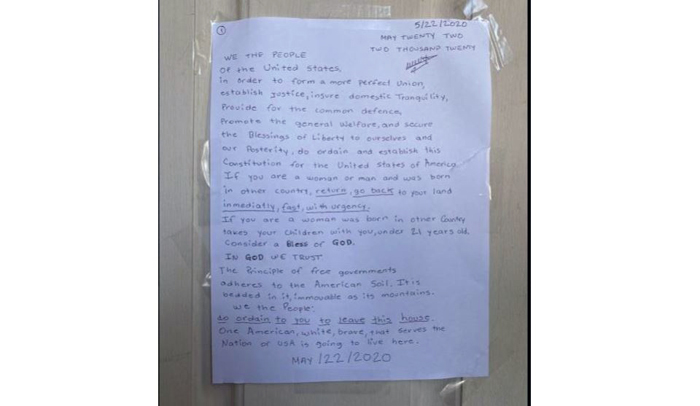 1
5/22/2020
MAY TWENTY TWO
TWO THOUSAND TWENTY
WE THE PEOPLE
Of the United States,
in order to form a more perfect Union,
establish justice, insure domestic Tranquility,
Provide for the common defence,
Promote the general Welfare, and secure
the Blessings of Liberty to ourselves and
our Posterity, do ordain and establish this
Constitution for the United States of America
If you are a woman or man and was born
in other country, return, go back to your land
inmediatly, fast, with urgency.
If you are a woman was born in other Country
takes your children with you, under 21 years old.
Consider a Bless of GOD.
IN GOD WE TRUST
The Principle of free governments
adheres to the American Soil. It is
bedded in it, immovable as its mountains.
We the People:
do ordain to you to leave this house.
One American, white, brave, that serves the
Nation of USA is going to live here.
MAY/22/2020